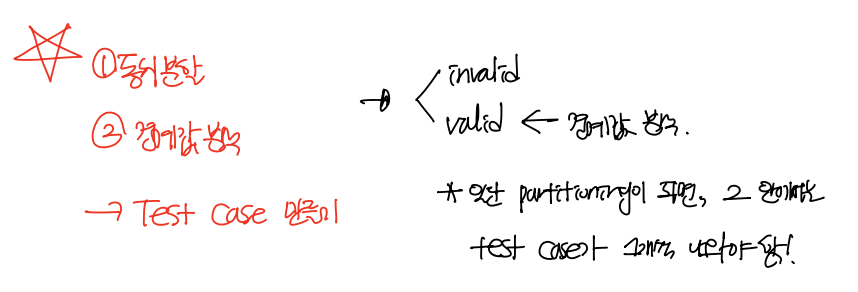 ① 동위분할
② 경계값 분석
→ Test case 만들기
→ invalid
valid ← 경계값 분석.
* 일단 partitioning이 되면, 그 안에서는
test case가 나와야 함!